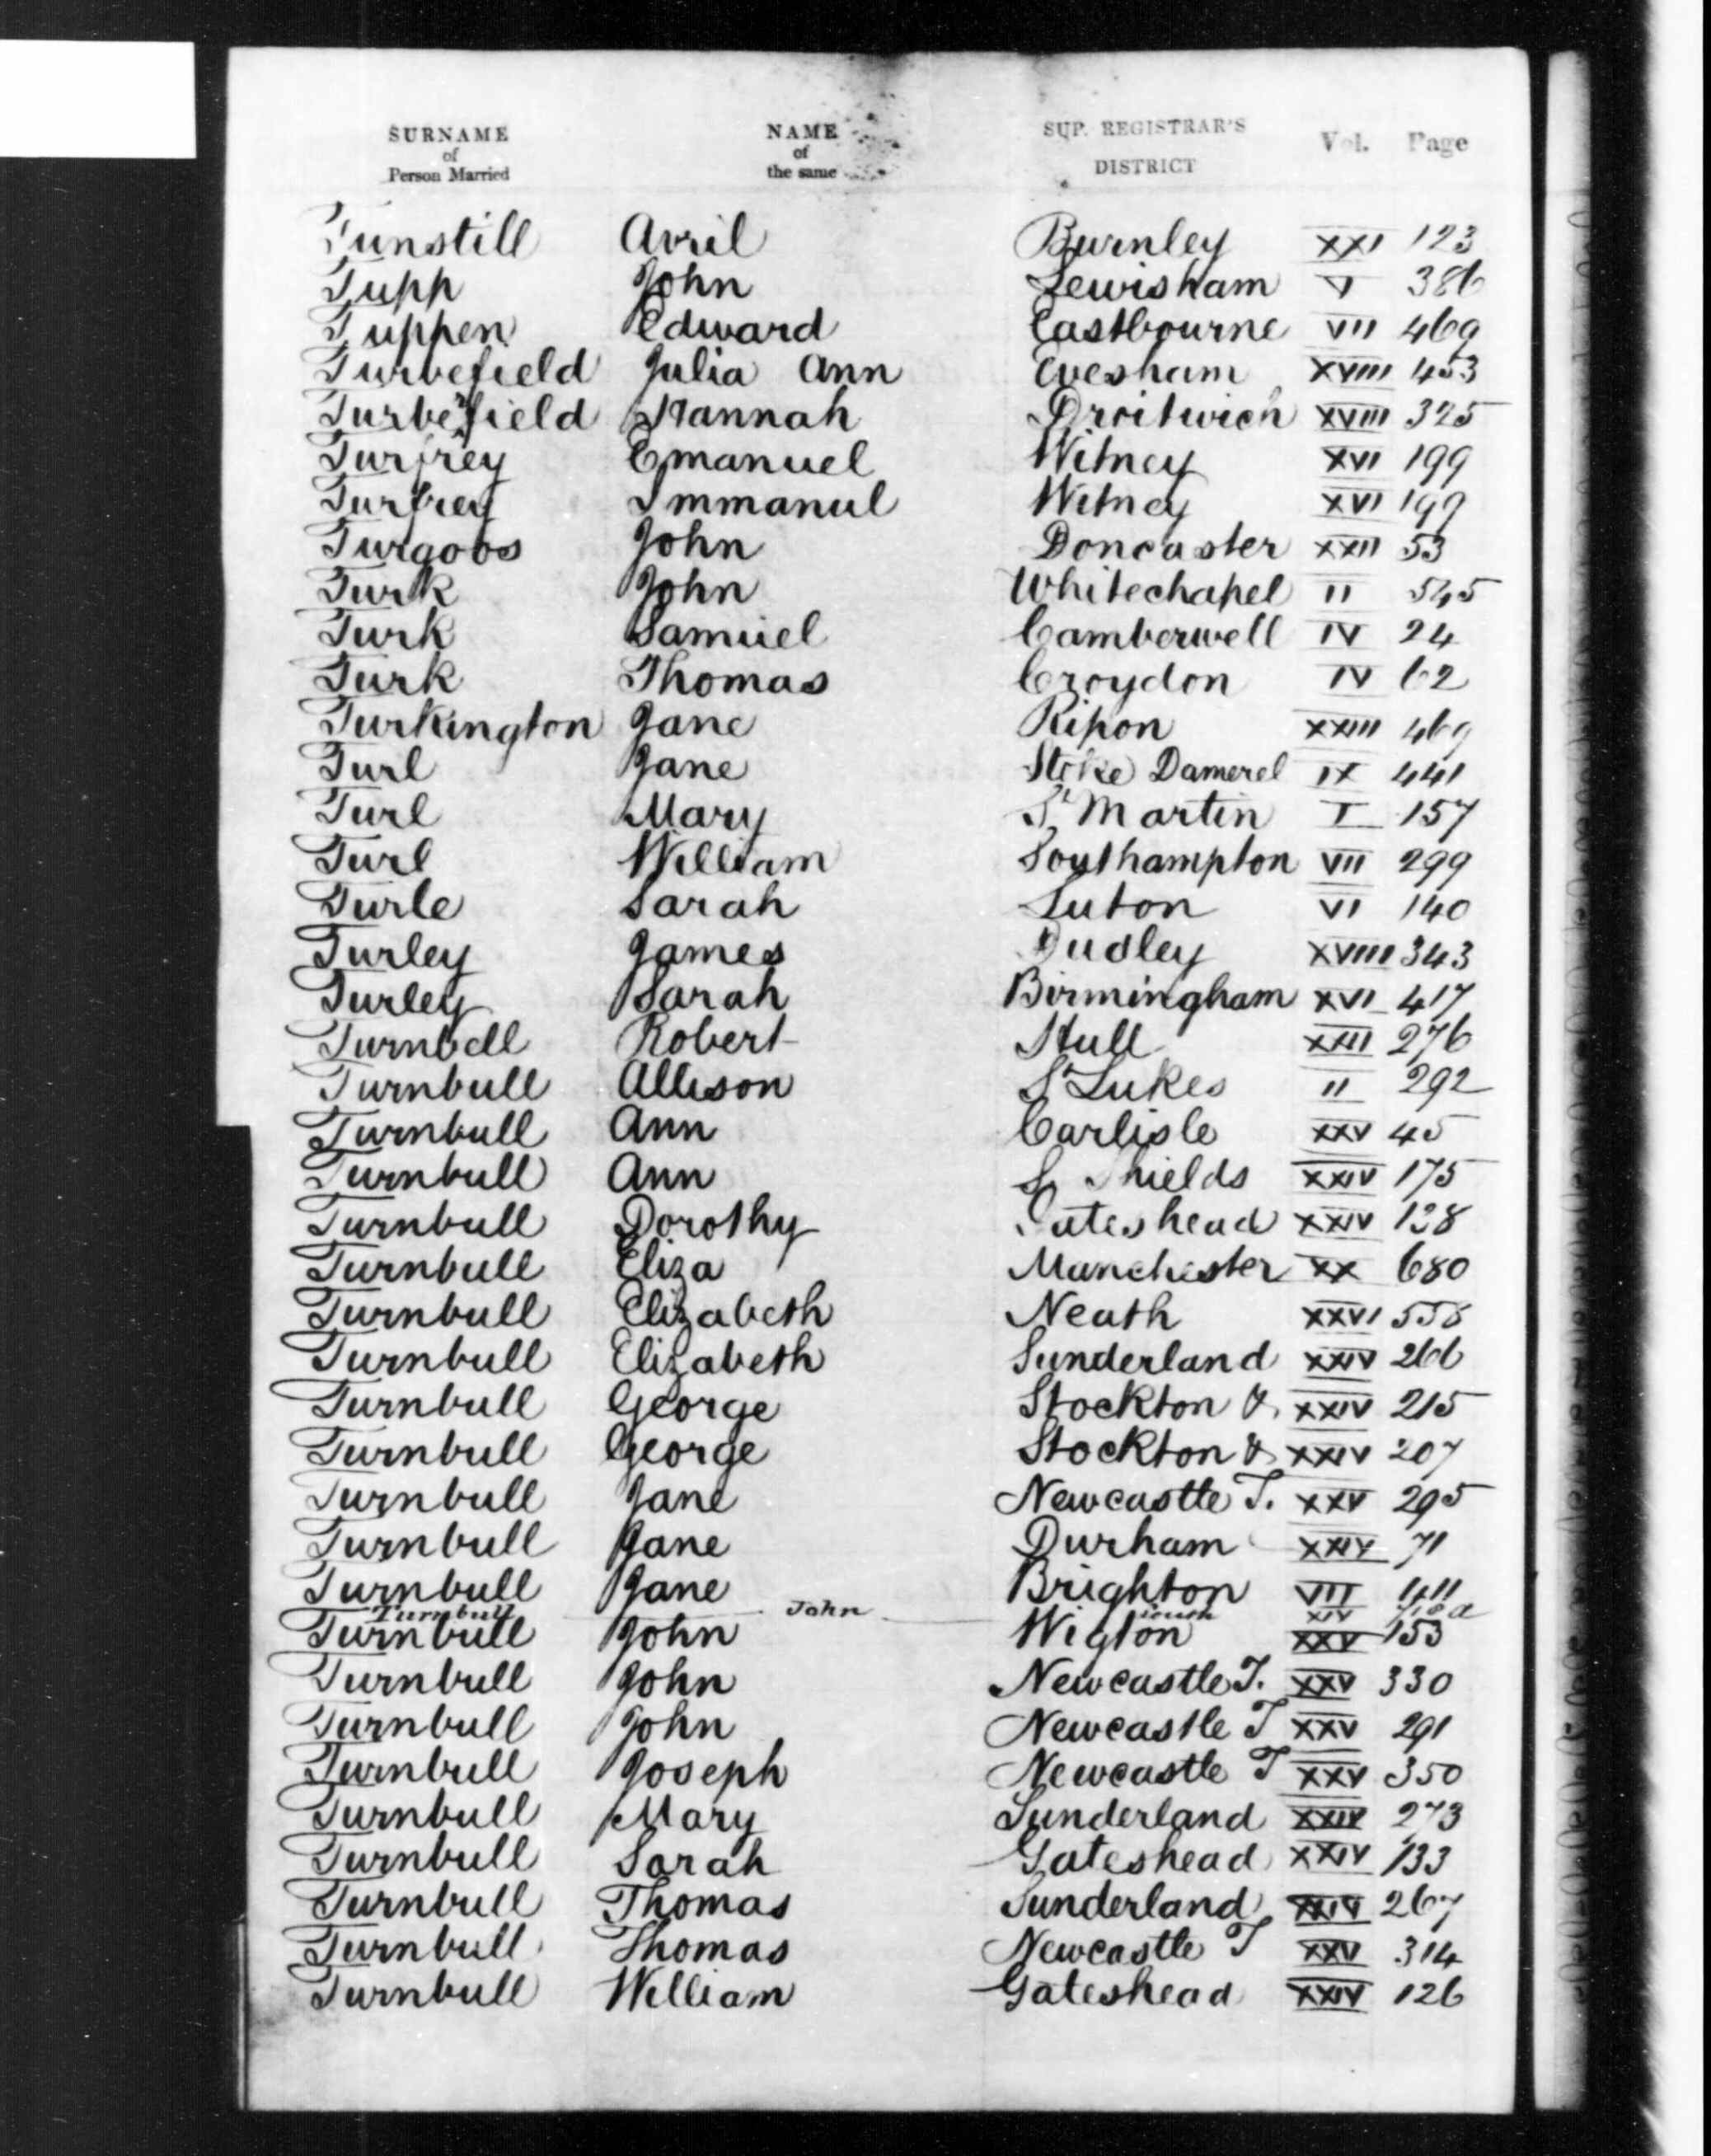 SURNAME of Person Married NAME of the same SUP. REGISTRAR'S DISTRICT Vol. Page
Tunstill Avril Burnley XXI 123
Tupp John Lewisham V 386
Tuppen Edward Eastbourne VII 469
Turbefield Julia Ann Evesham XVIII 453
Turberfield Hannah Droitwich XVIII 325
Turfrey Emanuel Witney XVI 199
Turfrey Immanul Witney XVI 199
Turgoos John Doncaster XXII 53
Turk John Whitechapel II 545
Turk Samuel Camberwell IV 24
Turk Thomas Croydon IV 62
Turkington Jane Ripon XXIII 469
Turl Jane Stoke Damerel IX 441
Turl Mary St Martin I 157
Turl William Southampton VII 299
Turle Sarah Luton VI 140
Turley James Dudley XVIII 343
Turley Sarah Birmingham XVI 417
Turnbell Robert Hull XXII 276
Turnbull Allison St Lukes II 292
Turnbull Ann Carlisle XXV 45
Turnbull Ann S. Shields XXIV 175
Turnbull Dorothy Gateshead XXIV 128
Turnbull Eliza Manchester XX 680
Turnbull Elizabeth Neath XXVI 558
Turnbull Elizabeth Sunderland XXIV 266
Turnbull George Stockton &. XXIV 215
Turnbull George Stockton & XXIV 207
Turnbull Jane Newcastle T. XXV 295
Turnbull Jane Durham XXIV 71
Turnbull Jane Brighton VII 411
Turnbull John XIV
Turnbull John Wigton XXV 153
Turnbull John Newcastle T. XXV 330
Turnbull John Newcastle T XXV 291
Turnbull Joseph Newcastle T XXV 350
Turnbull Mary Sunderland XXIV 273
Turnbull Sarah Gateshead XXIV 133
Turnbull Thomas Sunderland XXIV 267
Turnbull Thomas Newcastle T XXV 314
Turnbull William Gateshead XXIV 126